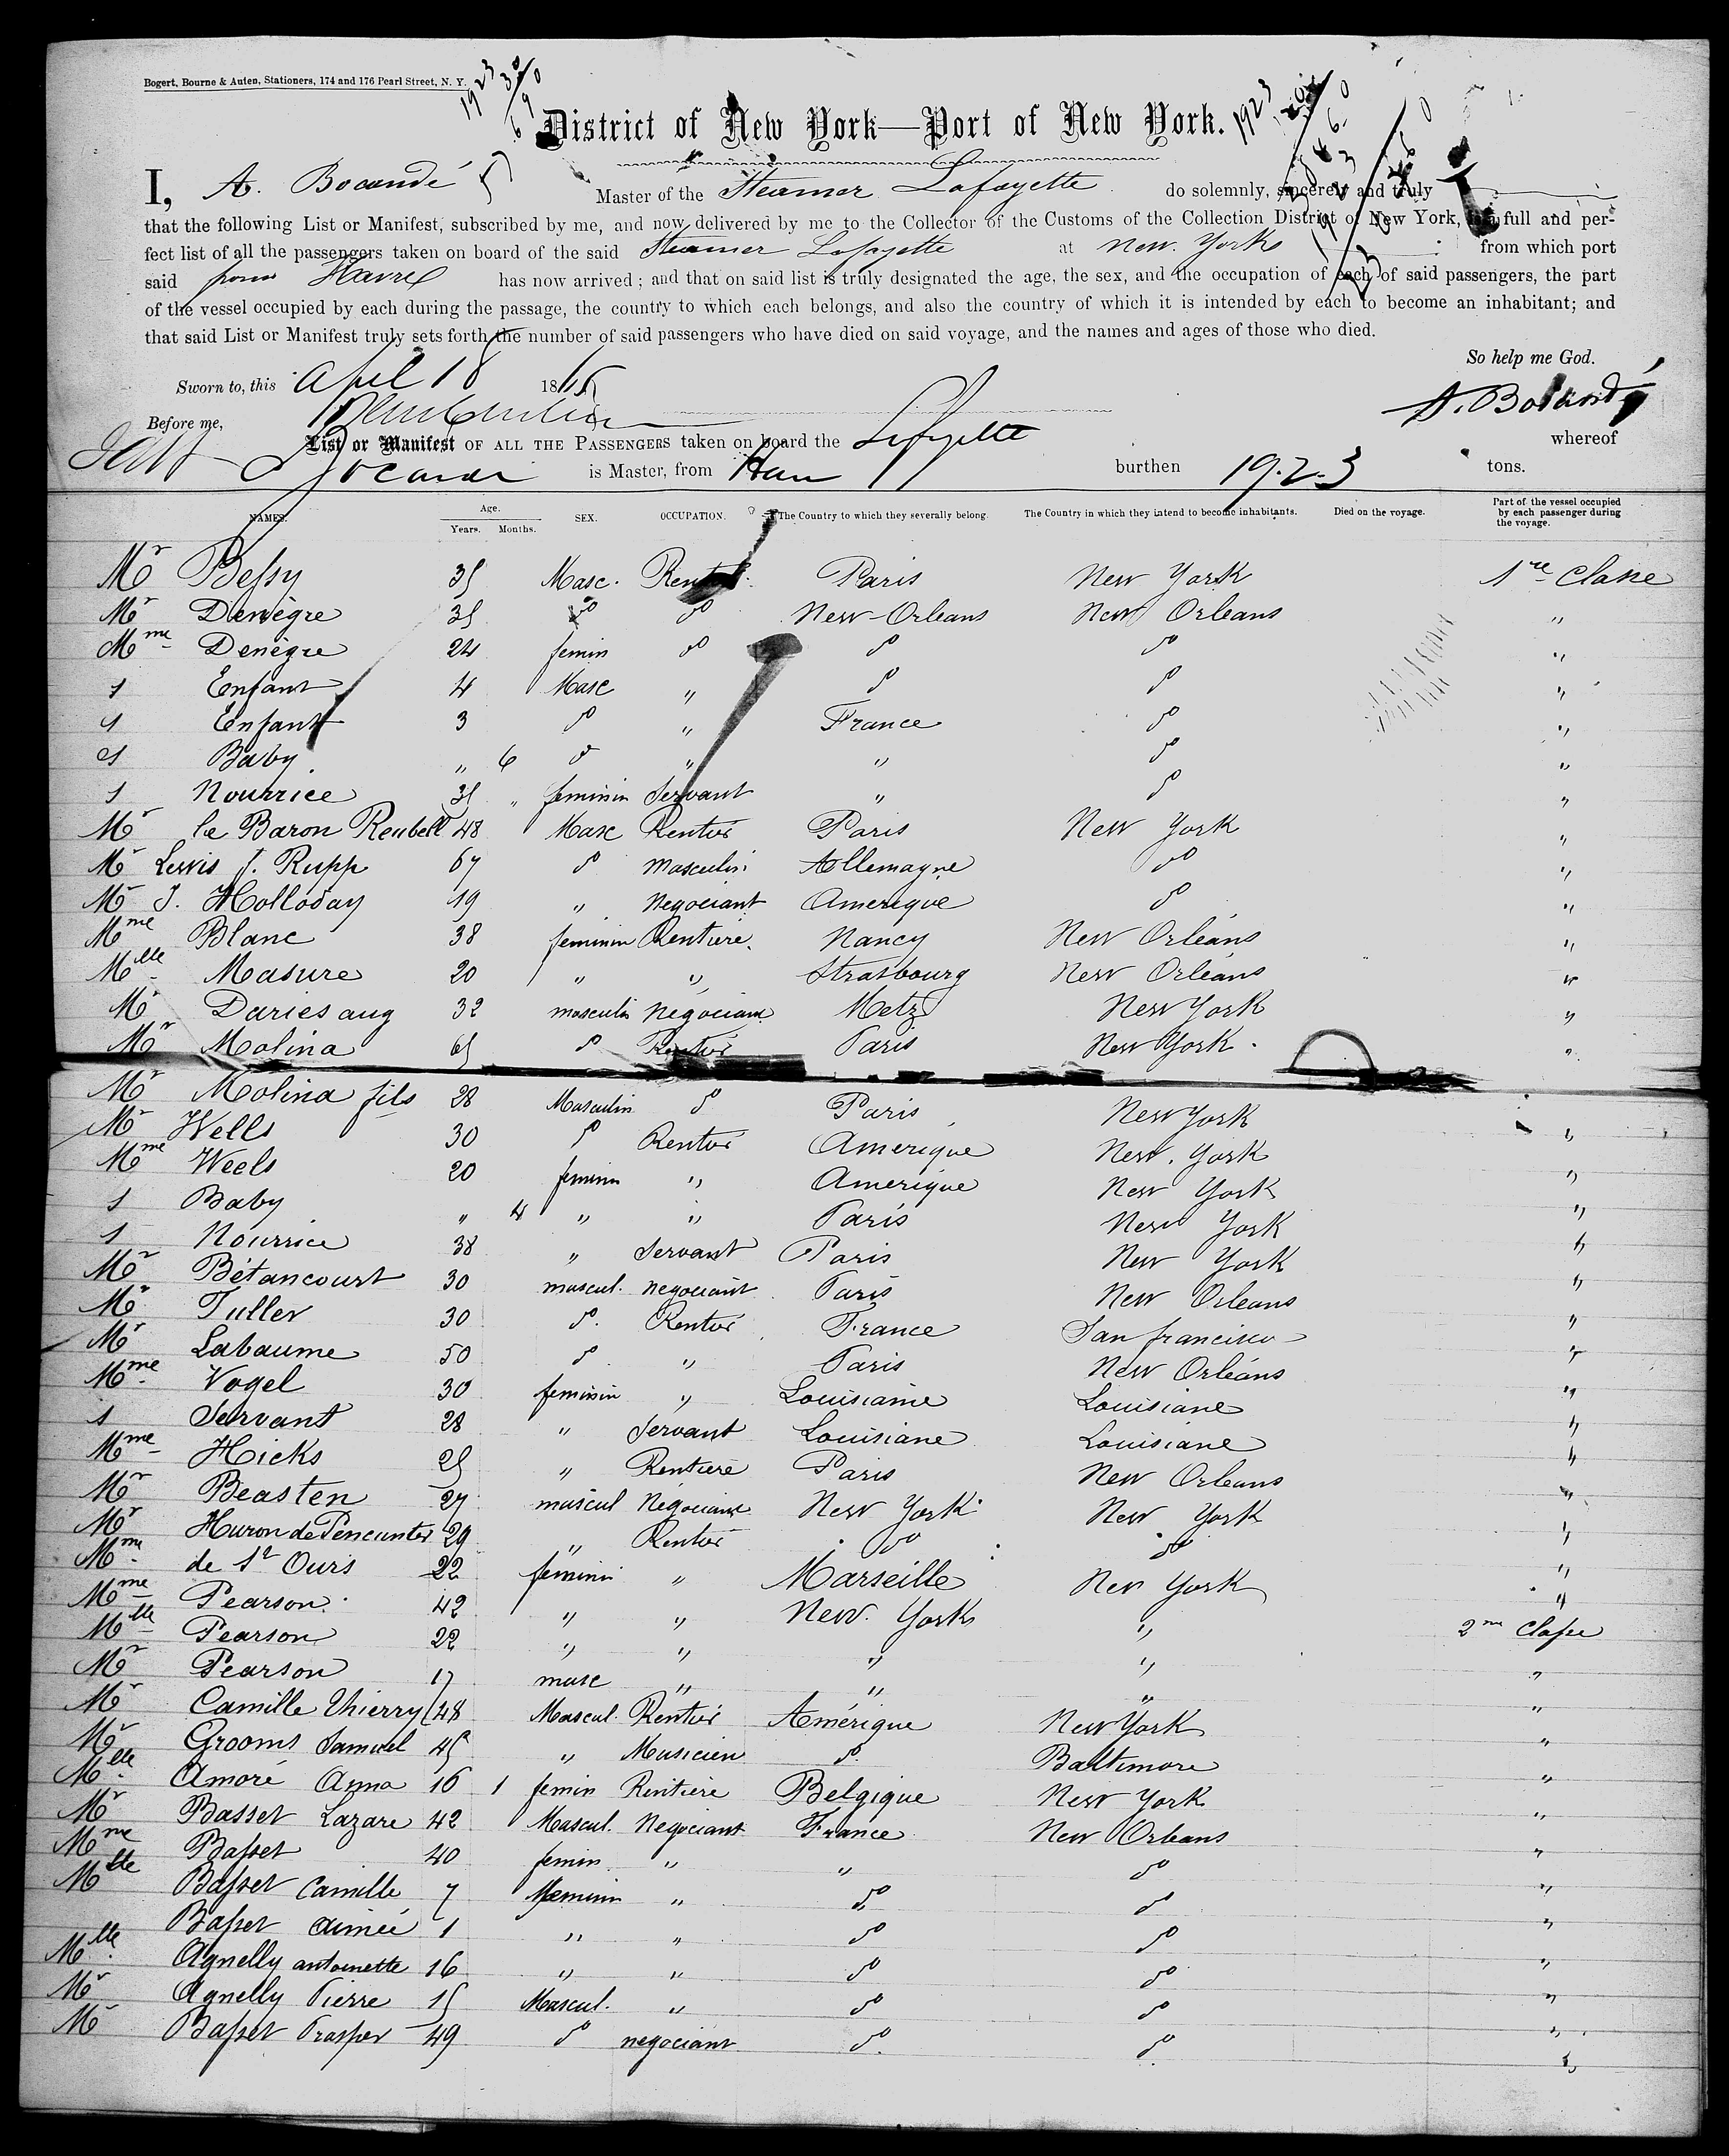 Bogert, Bourne & Auten, Stationers, 174 and 176 Pearl Street, N. Y.
1923
1923
District of New York—Port of New York.
I, A. Bocandé Master of the Steamer Lafayette do solemnly, sincerely and truly
that the following List or Manifest, subscribed by me, and now delivered by me to the Collector of the Customs of the Collection District of New York, full and per-
fect list of all the passengers taken on board of the said Steamer Lafayette at New York from which port
said from Havre has now arrived; and that on said list is truly designated the age, the sex, and the occupation of each of said passengers, the part
of the vessel occupied by each during the passage, the country to which each belongs, and also the country of which it is intended by each to become an inhabitant; and
that said List or Manifest truly sets forth the number of said passengers who have died on said voyage, and the names and ages of those who died.
So help me God.
Sworn to, this April 18 18
A. Bocandé
Before me,
List or Manifest OF ALL THE PASSENGERS taken on board the Lafayette whereof
Bocandé is Master, from Havre burthen 1923 tons.
NAMES. Age. Years. Months. SEX. OCCUPATION. The Country to which they severally belong. The Country in which they intend to become inhabitants. Died on the voyage. Part of the vessel occupied by each passenger during the voyage.
Mr Bessy 35 Masc. Rentier Paris New York 1re Classe
Mr Denègre 35 do do New-Orleans New Orleans "
Mme Denègre 24 femin do do do "
1 Enfant 4 Masc " do do "
1 Enfant 3 do " France do "
1 Baby " 6 do " " do "
1 Nourrice 35 " feminin Servant " do "
Mr le Baron Reubell 48 Masc Rentier Paris New York "
Mr Lewis J. Rupp 67 do masculin Allemagne do "
Mr J. Holloday 19 " Negociant Amerique do "
Mme Blanc 38 feminin Rentiere Nancy New Orléans "
Mlle Masure 20 " " Strasbourg New Orléans "
Mr Daries aug 32 masculin Negociant Metz New York "
Mr Molina 65 do Rentier Paris New York "
Mr Molina fils 28 Masculin do Paris New York
Mr Wells 30 do Rentier Amerique New York "
Mme Weels 20 feminin " Amerique New York "
1 Baby " 4 " " Paris New York "
1 Nourrice 38 " Servant Paris New York "
Mr Bétancourt 30 mascul. negociant Paris New Orleans "
Mr Tuller 30 do Rentier France San francisco "
Mr Labaume 50 do " Paris New Orléans "
Mme Vogel 30 feminin " Louisiane Louisiane "
1 Servant 28 " Servant Louisiane Louisiane "
Mme Hicks 25 " Rentiere Paris New Orleans "
Mr Beasten 27 mascul Négociant New York New York "
Mr Huron de Pencunter 29 " Rentier do do "
Mme de St Ours 22 feminin " Marseille New York "
Mme Pearson 42 " " New York " "
Mlle Pearson 22 " " " " 2me Classe
Mr Pearson 17 masc " " " "
Mr Camille Thierry 48 Mascul. Rentier Amérique New York "
Mr Grooms Samuel 45 " Musicien do Baltimore "
Mlle Amoré Anna 16 1 femin Rentiere Belgique New York "
Mr Basset Lazare 42 Mascul. Negociant France New Orleans "
Mme Basset 40 femin " " do "
Mlle Basset Camille 7 feminin " do do "
Basset aimée 1 " " do do "
Mlle Agnelly antoinette 16 " " do do "
Mr Agnelly Pierre 15 Mascul. " do do "
Mr Basset Prosper 49 do negociant do do "